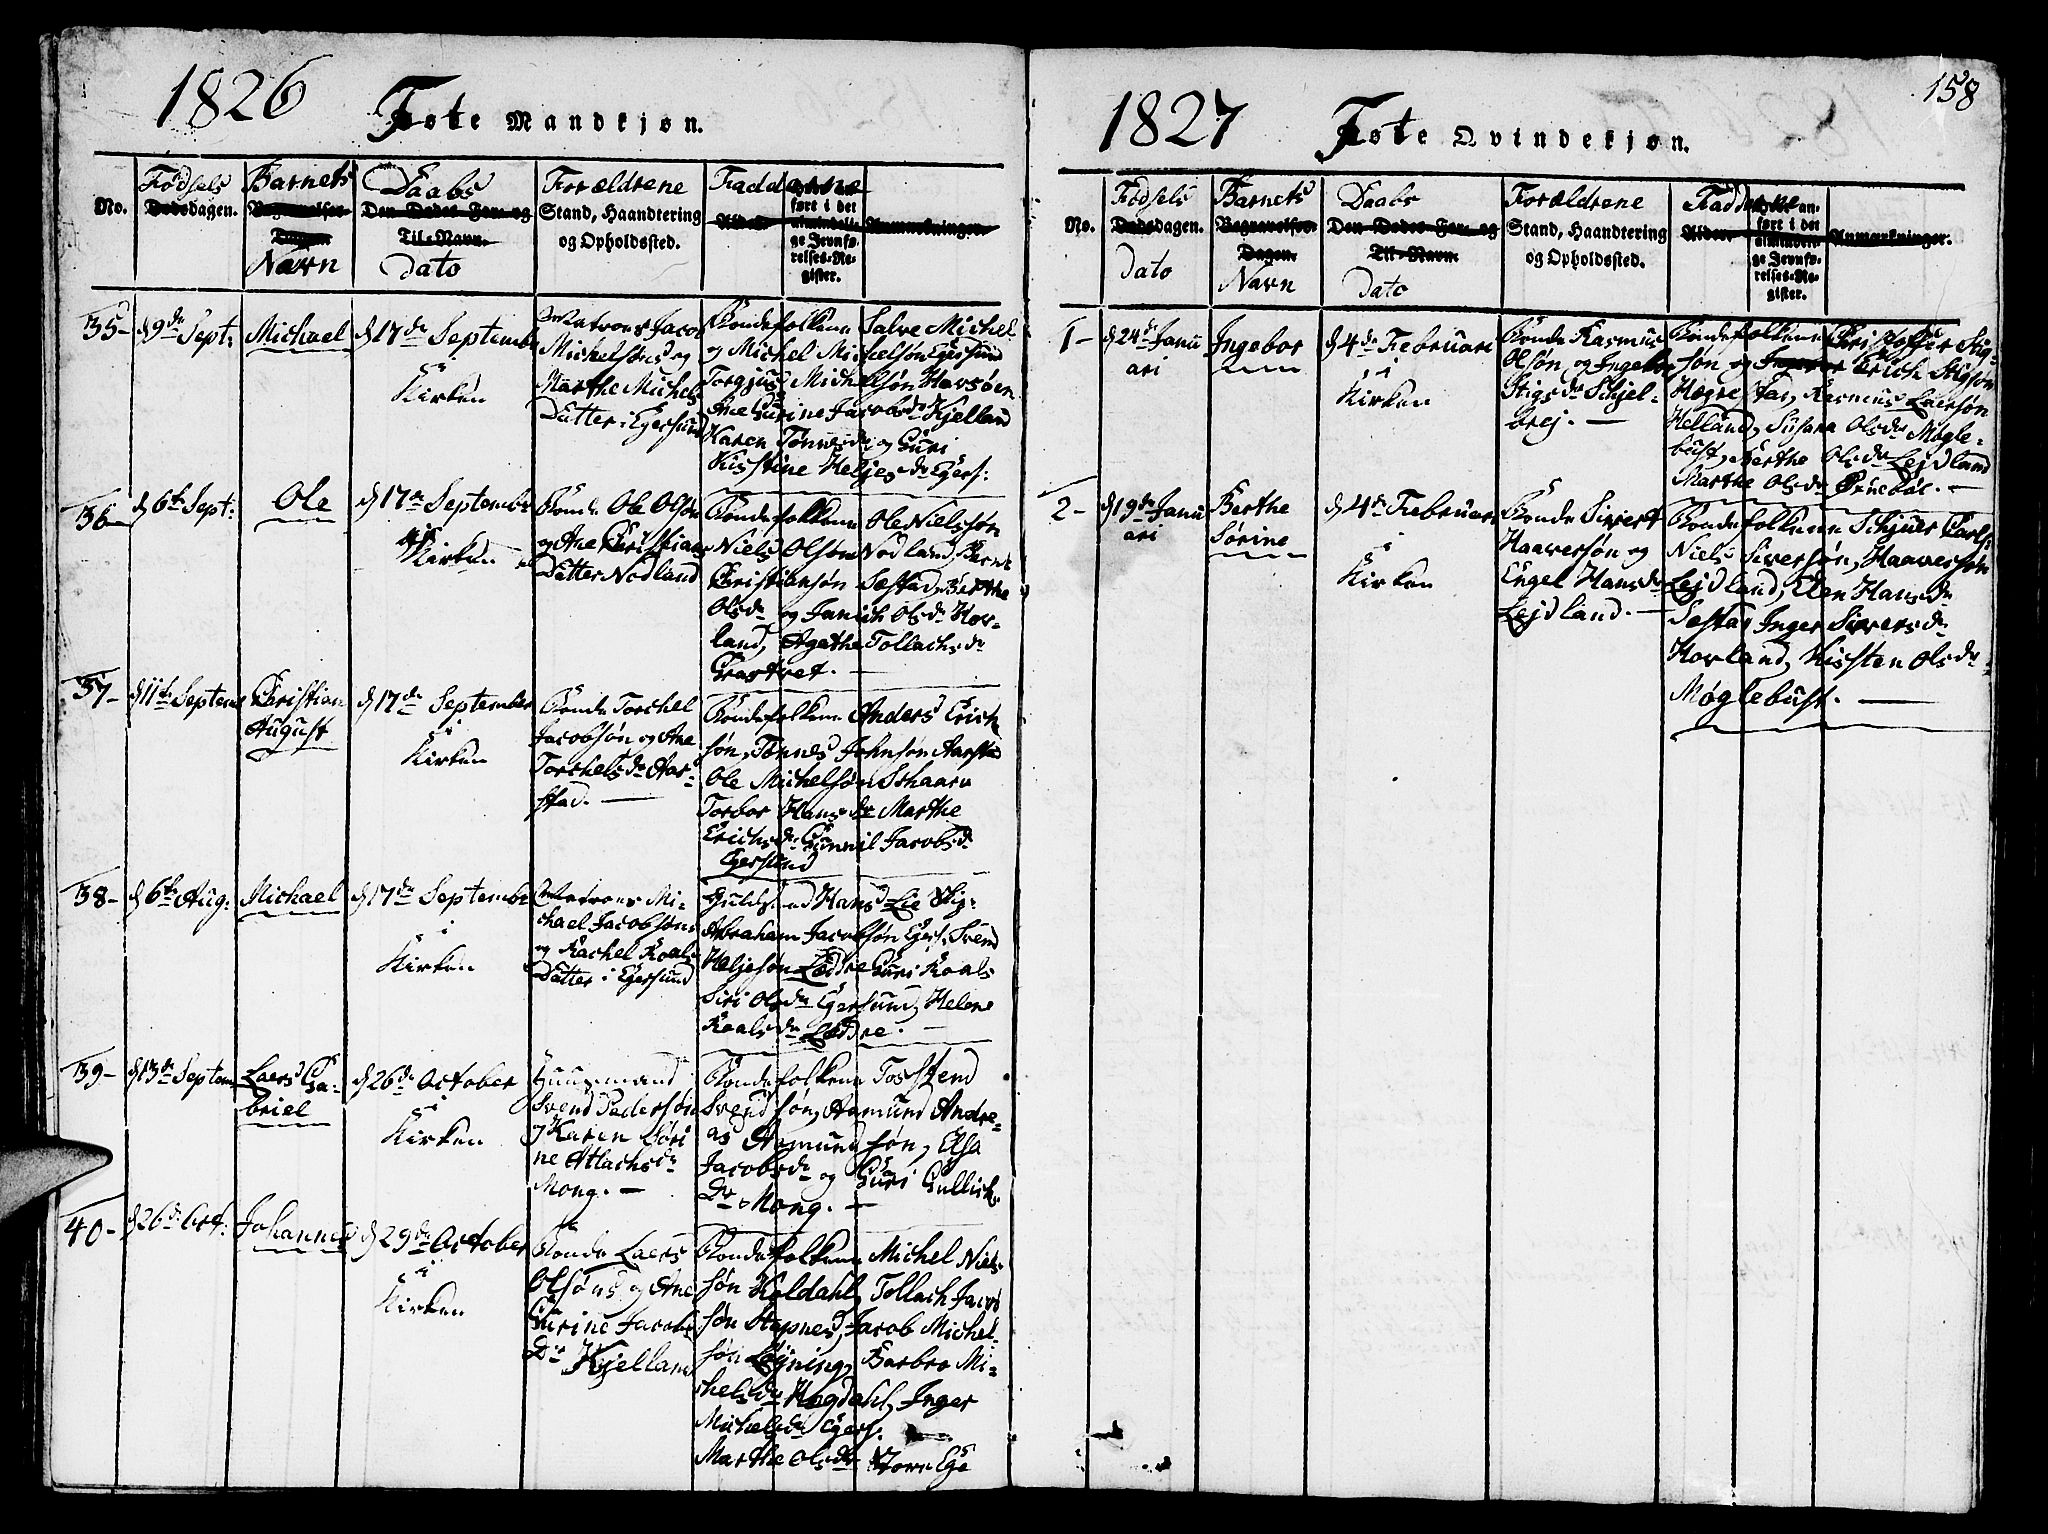 1826
Føte Mandkjøn.
No.
Fødsels
Dødsdagen.
Barnets
Begravelses-
Dagen
Navn
Daabs
Den Dødes For- og
Til-Navn.
Dato
Forældrene
Stand, Haandtering
og Opholdssted.
Fadderne
Alder
ført i det
almindeli-
ge Jevnfø-
relses-Re-
gister.
Anmærkninger.
35-
d 9de Sept:
Michael
d 17de Septembr
i
Kirken
Matrous Jacob
Michelsøns og
Marthe Michels
Datter i Egersund
Bondefolkene Salve Michel-
og Michel Michelsøn Egersund
Torgjus Michelsøn Havsøen
Ane Gurine Jacobsdr Kjelland
Karen Tønnesdr og Guri
Kistine Heljesdr Egers:
36-
d 6te Sept:
Ole
d 17de Septembr
i
Kirken
Bonde Ole Olsøn
og Ane Christians
Datter Nodland
Bondefolkene Ole Nielssøn
Niels Olsøn Nodland, Bernt
Christiansøn Sæstad, Berthe
Olsdr og Janich Olsdr Hov-
land, Agathe Tollachsdr
Grastvet. —
37-
d 11te Septem
Christian
August
d 17de September
i
Kirken
Bonde Torchel
Jacobsøn og Ane
Torchelsdr Aar-
stad. —
Bondefolkene Anders Erich
søn, Tønnes Johnsøn Aarstad
Ole Michelsøn Schaara
Torbor Hansdr Marthe
Erichsdr Gunnil Jacobsdr
Egersund
38-
d 6te Aug:
Michael
d 17de Septembr
i
Kirken
Matrous Mi-
chael Jacobsøns
og Rachel Roals
Datter i Egersund
Guldsmed Hans Lie Skip-
Abraham Jacobsøn Egers. Svend
Heljesøn Lædre Guri Roals
Siri Olsdr Egersund, Helene
Roalsdr Lædre. —
39-
d 13de Septem
Laers Ga-
briel
d 26de October
i
Kirken
Huusmand
Svend Pedersøn
og Karen Søri
ne Atlachsdr
Mong. —
Bondefolkene Tosstend
Svendsøn, Aamund Andre-
as Aamundsøn, Elsa
Jacobsdr og Guri Gullichs
Dr Mong. —
40-
d 26de Oct:
Johannes
d 29de October
i
Kirken
Bonde Laers
Olsøns og Ane
Gurine Jacobs
Dr Kjelland
Bondefolkene Michel Niels-
søn Koldahl, Tollach Jacob
søn Stapnes, Jacob Michel-
søn Lejning, Barbro Mi-
chelsdr Høgdahl, Inger
Michelsdr Egers.
Marthe Olsdr Horv Ege
158
1827
Føte Qvindekjøn.
No.
Fødsels
Dødsdagen.
Dato
Barnets
Begravelses-
Dagen.
Navn
Daabs
Den Dødes For- og
Til-Navn.
Dato
Forældrene
Stand, Haandtering
og Opholdssted.
Fadderne
Alder.
an-
ført i det
almindeli-
ge Jevnfø-
relses-Re-
gister.
Anmærkninger.
1-
d 24de Janu
ari
Ingebor
d 4de Februari
i
Kirken
Bonde Rasmus
Olsøn, og Ingebor
Stigsdr Skjel-
brej. —
Bondefolkene Christoffer Stig-
søn og Erich Stigsøn
Høgrestad, Rasmus Laersøn
Helland, Susana Olsdr Møgle-
bust, Berthe Olsdr Lejdland
Marthe Olsdr Ørnebøl. —
2-
d 19de Janu
ari
Berthe
Sørine
d 4de Februari
i
Kirken
Bonde Sivert
Haaversøn og
Engel Hansdr
Lejdland. —
Bondefolkene Schjuer Carls-
Niels Siversøn, Haaversøn
Lejdland, Elen Hansdr
Sæstad Inger Siversdr
Hovland, Kisten Olsdr
Møglebust. —